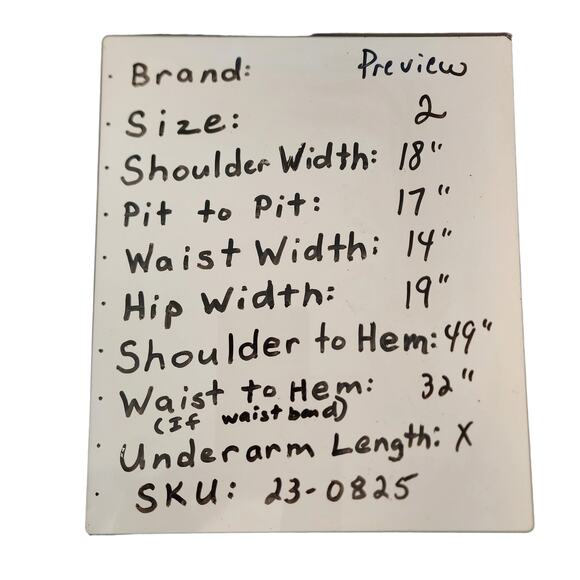 · Brand: Preview
· Size: 2
· Shoulder Width: 18"
· Pit to Pit: 17"
· Waist Width: 14"
· Hip Width: 19"
· Shoulder to Hem: 49"
· Waist to Hem: 32"
(If waist band)
· Underarm Length: X
· SKU: 23-0825